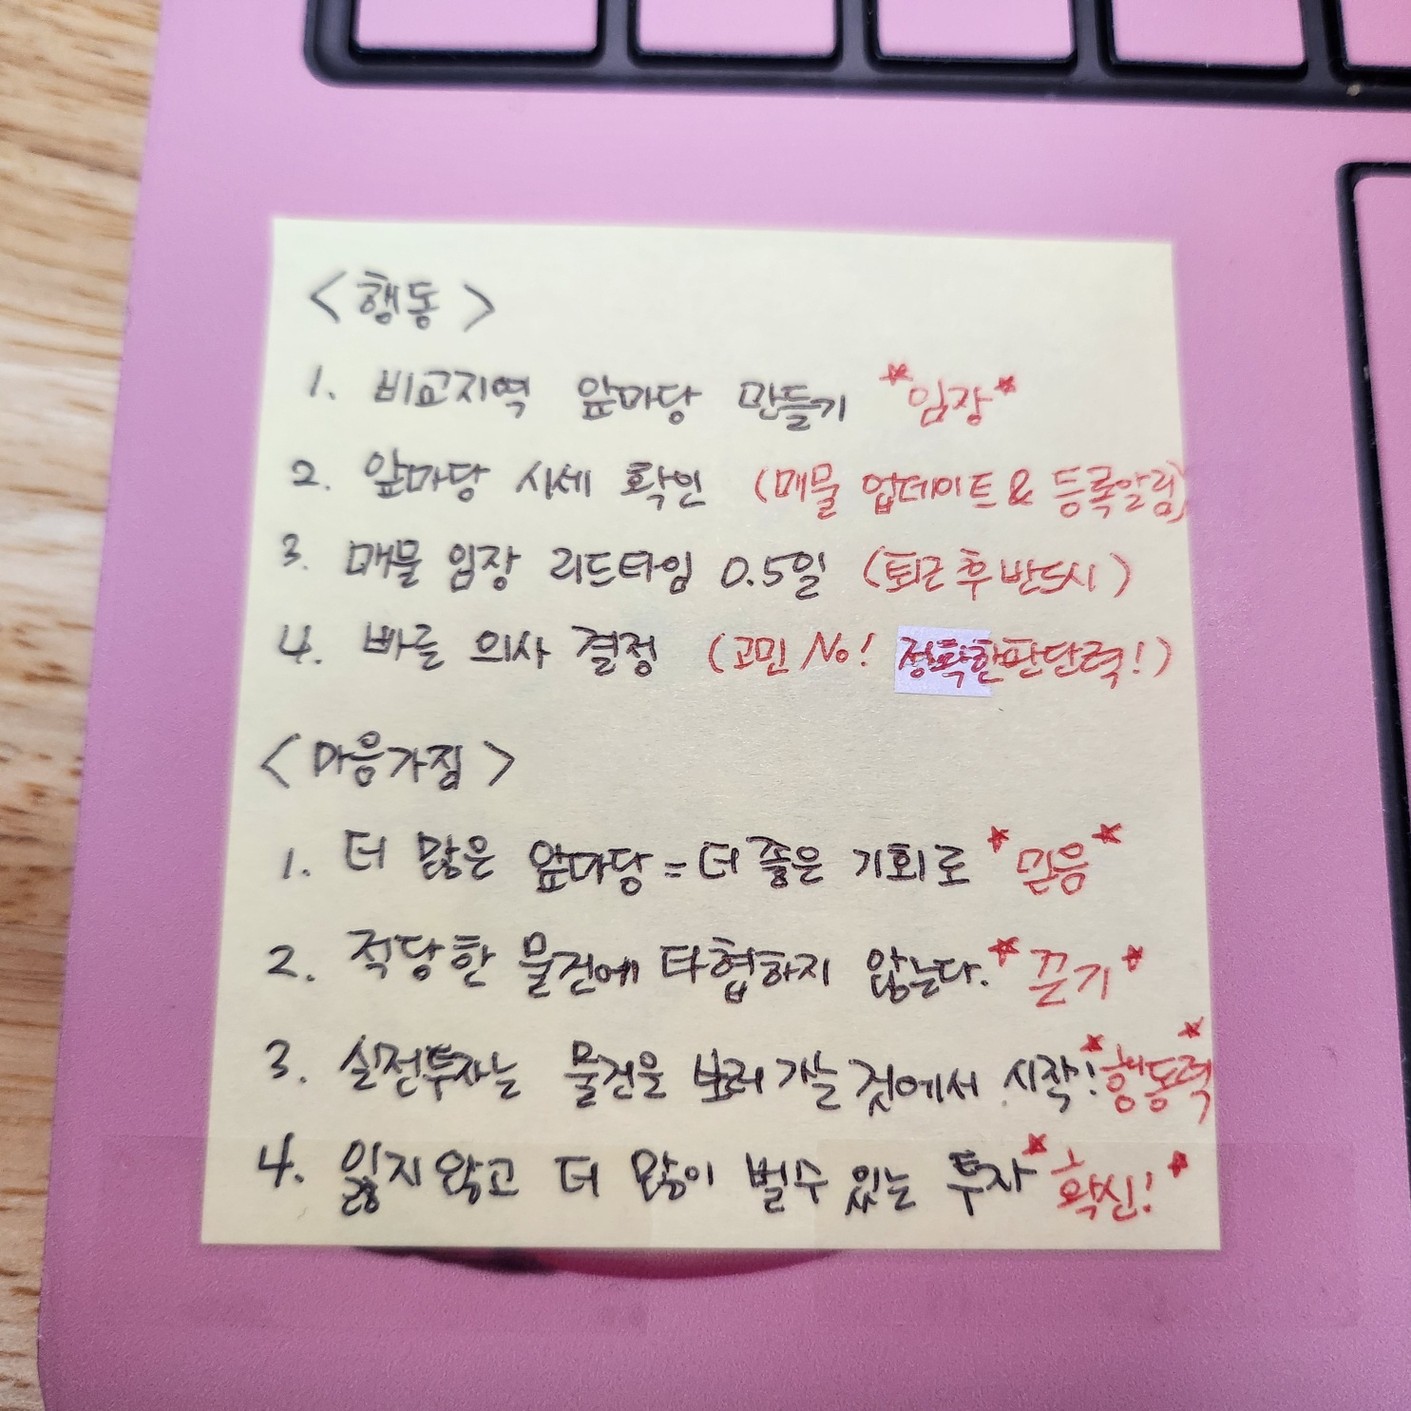 <행동>
1. 비교지역 앞마당 만들기 *임장*
2. 앞마당 시세 확인 (매물 업데이트 & 등록알림)
3. 매물 임장 리드타임 0.5일 (퇴근 후 반드시)
4. 빠른 의사 결정 (고민 No! 정확한판단력!)
<마음가짐>
1. 더 많은 앞마당 = 더 좋은 기회로 *믿음*
2. 적당한 물건에 타협하지 않는다. *끈기*
3. 실전투자는 물건을 보러 가는 것에서 시작! *행동력*
4. 잃지 않고 더 많이 벌 수 있는 투자 *확신!*